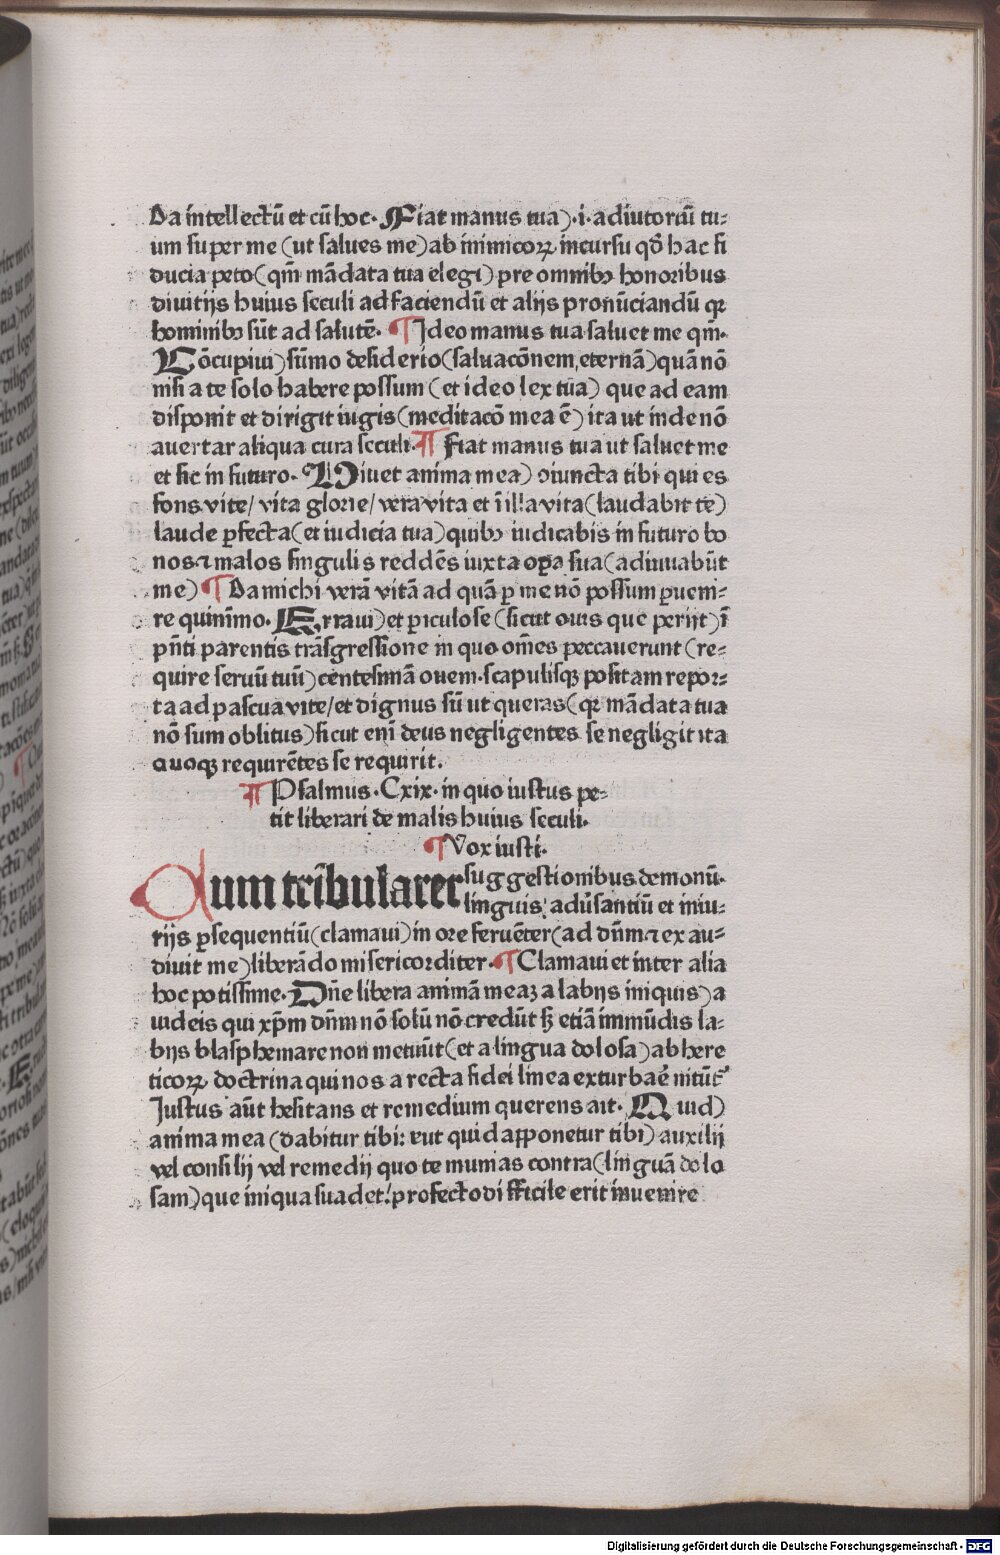 Da intellectū et cū hoc. Fiat manus tua).i. adiutoriū tu⸗
um super me (ut salues me) ab inimicoꝝ incursu qđ hac fi
ducia peto (qm̄ mādata tua elegi) pre omnibꝰ honoribus
diuitijs huius seculi ad faciendū et alijs pronūciandū qꝛ
hominibꝰ sūt ad salutē. ¶ Ideo manus tua saluet me qm̄.
Cōcupiui) sūmo desiderio (saluacōnem, eternā) quā nō
nisi a te solo habere possum (et ideo lex tua) que ad eam
disponit et dirigit iugis (meditacō mea ē) ita ut inde nō
auertar aliqua cura seculi. ¶ Fiat manus tua ut saluet me
et sic in futuro. Viuet anima mea) ↄiuncta tibi qui es
fons vite/ vita glorie/ vera vita et ī illa vita (laudabit te)
laude ꝑfecta (et iudicia tua) quibꝰ iudicabis in futuro bo
nos ⁊ malos singulis reddēs iuxta oꝑa sua (adiuuabūt
me) ¶ Da michi verā vitā ad quā ꝑ me nō possum ꝑueni⸗
re quinīmo. Erraui) et ꝑiculose (sicut ouis que perijt) ī
pn̄ti parentis trāsgressione in quo om̄es peccauerunt (re⸗
quire seruū tuū) centesimā ouem. scapulisqꝫ positam repor⸗
ta ad pascua vite/ et dignus sū ut queras (qꝛ mādata tua
nō sum oblitus) sicut eni̅ deus negligentes se negligit ita
quoqꝫ requirētes se requirit.
¶ Psalmus. Cxix. in quo iustus pe⸗
tit liberari de malis huius seculi.
¶ Vox iusti.
Cum tribularer suggestionibus demonū.
linguis aduersantiū et iniu⸗
rijs ꝑsequentiū (clamaui) in ore feruēter (ad dn̄m ⁊ exau⸗
diuit me) liberādo misericorditer. ¶ Clamaui et inter alia
hoc potissime. Dn̄e libera animā meaꝫ a labijs iniquis) a
iudeis qui xp̄m dn̄m nō solū nō credūt sꝫ etiā immūdis la⸗
bijs blasphemare non metuūt (et a lingua dolosa) ab here
ticoꝝ doctrina qui nos a recta fidei linea exturbaē nitūt᷑
Iustus aūt hesitans et remedium querens ait. Quid)
anima mea (dabitur tibi: eut quid apponetur tibi) auxilij
vel consilij vel remedij quo te munias contra (linguā dolo
sam) que iniqua suadet! profecto difficile erit inuenire
Digitalisierung gefördert durch die Deutsche Forschungsgemeinschaft - DFG